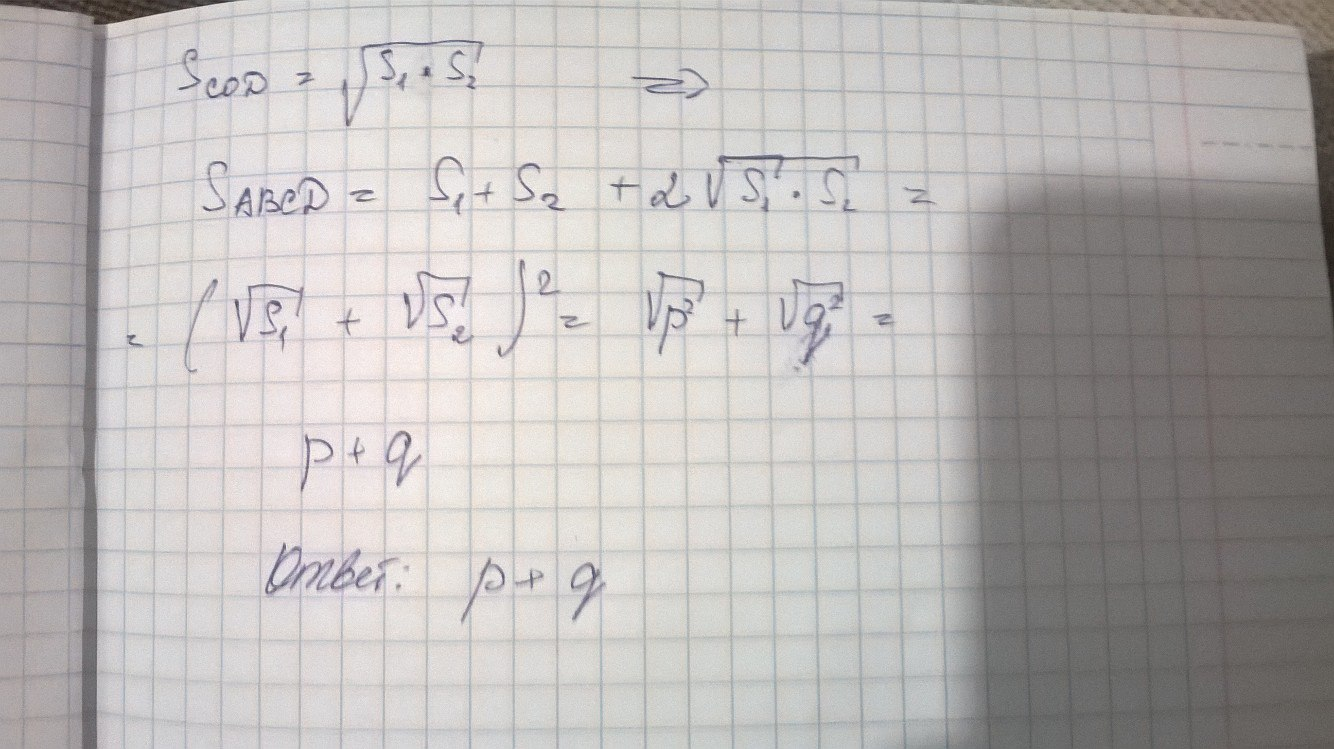 S_COD = √(S₁ · S₂) ⇒
S_ABCD = S₁ + S₂ + 2√(S₁ · S₂) =
= (√S₁ + √S₂)² = √p² + √q² =
p + q
Ответ: p + q